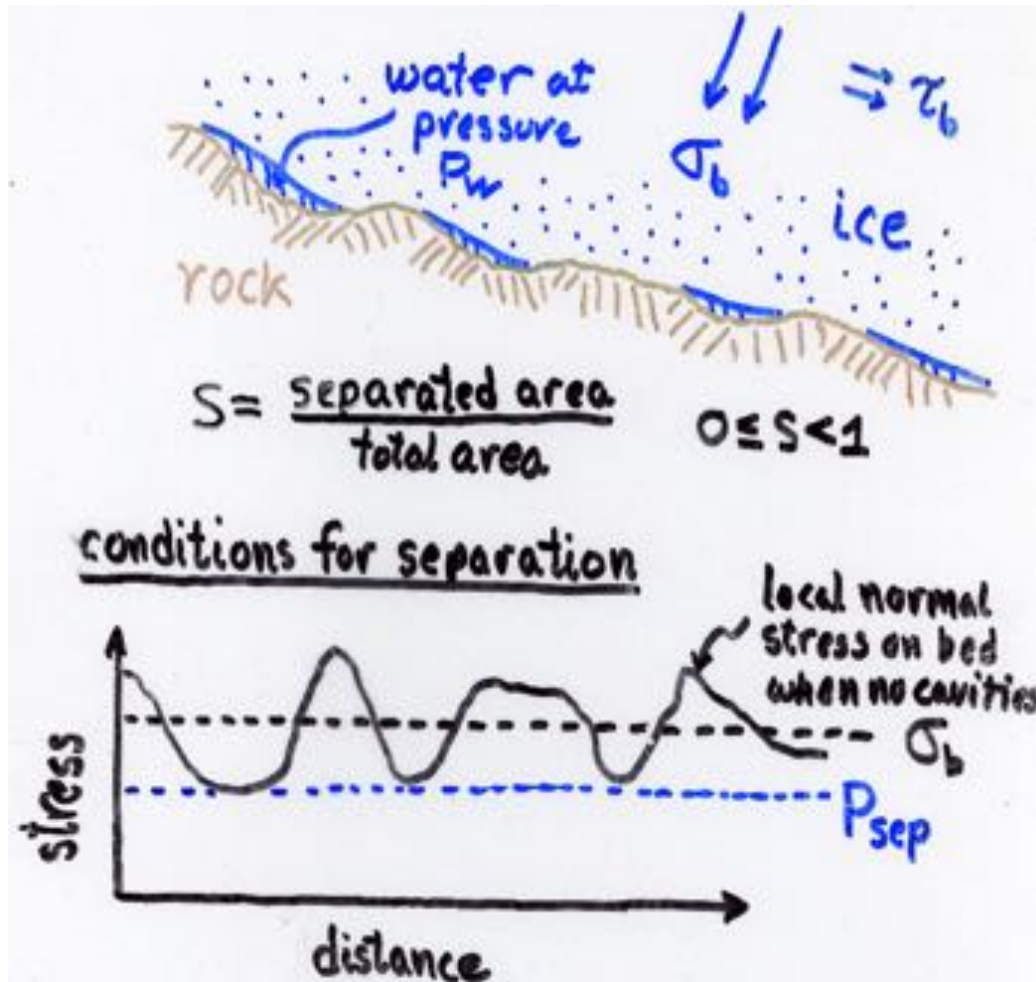 water at
pressure
Pw
σb
τb
ice
rock
S = separated area
total area
0 ≤ S < 1
conditions for separation
local normal
stress on bed
when no cavities
σb
Psep
stress
distance